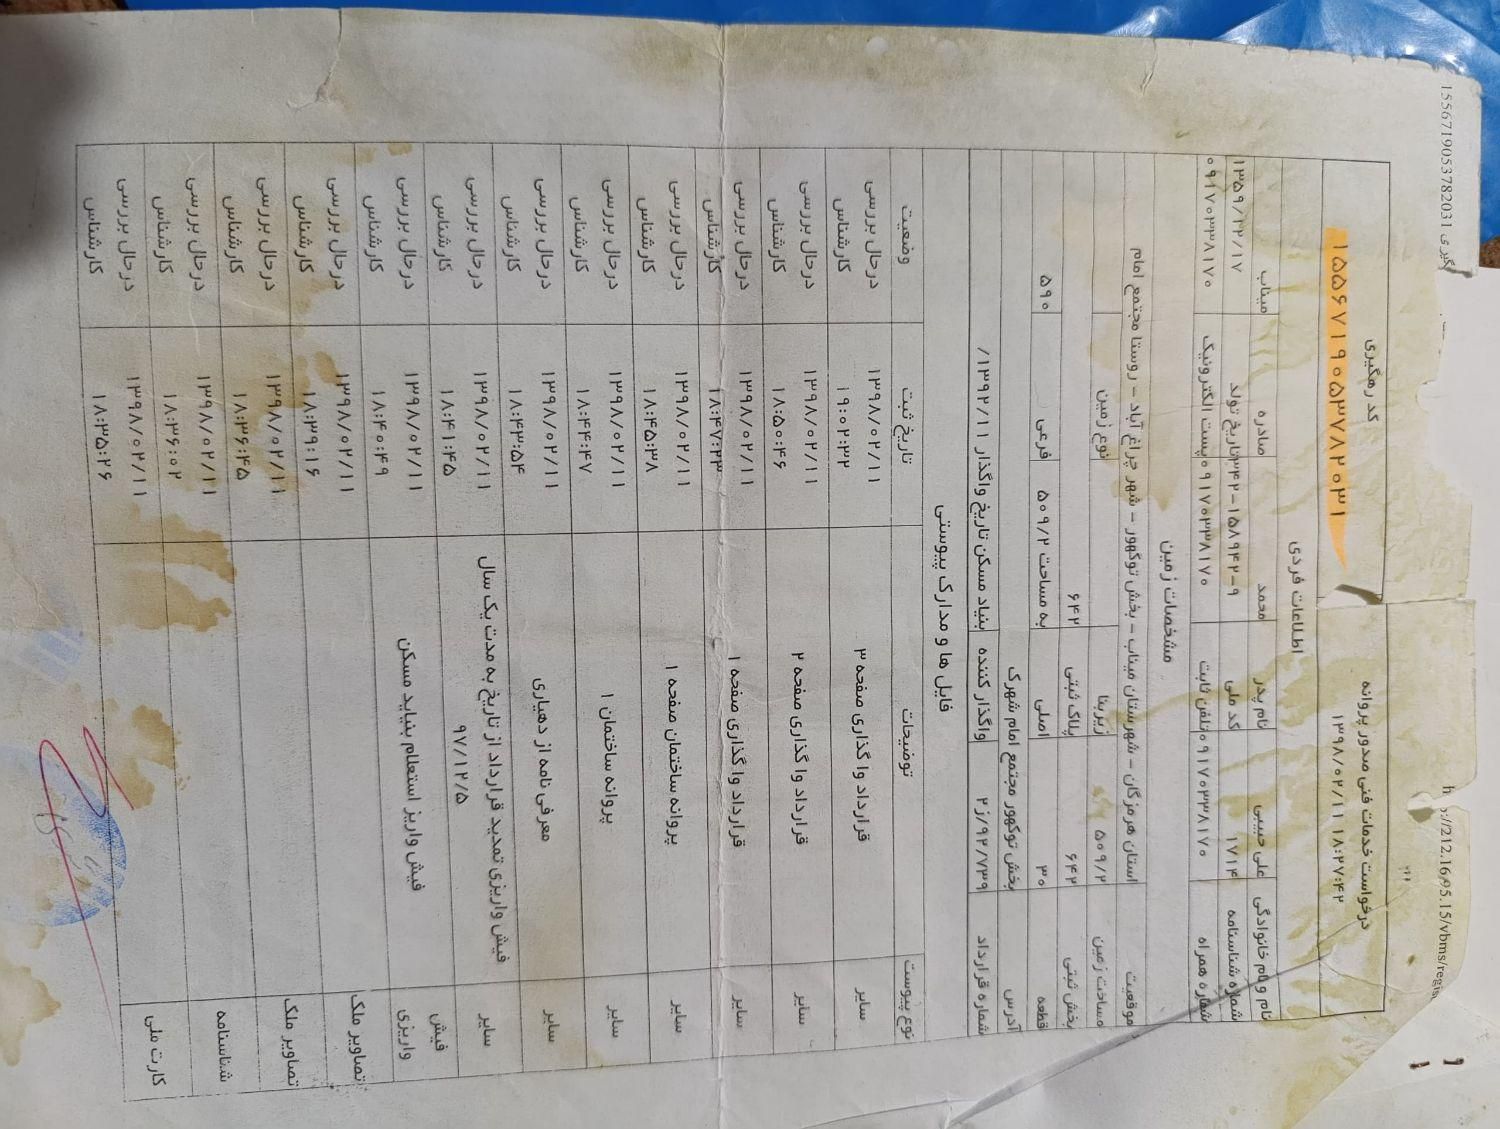 گیری 1556719053782031
h ://212.16 95.15/vbms/regis
کد رهگیری
۱۵۵۶۷۱۹۰۵۳۷۸۲۰۳۱
درخواست خدمات فنی صدور پروانه
۱۳۹۸/۰۲/۱۱ ۱۸:۲۷:۴۲
اطلاعات فردی
نام و نام خانوادگی علی حبیبی نام پدر محمد صادره میناب
شماره شناسنامه ۱۷۱۴ کد ملی ۳۴۲-۱۵۸۹۴۲-۹ تاریخ تولد ۱۳۵۹/۱۲/۱۷
شماره همراه ۰۹۱۷۰۳۳۸۱۷۰ تلفن ثابت ۰۹۱۷۰۳۳۸۱۷۰ پست الکترونیک ۰۹۱۷۰۳۳۸۱۷۰
مشخصات زمین
موقعیت استان هرمزگان - شهرستان میناب - بخش توکهور - شهر چراغ آباد - روستا مجتمع امام
مساحت زمین ۵۰۹/۲ زیربنا نوع زمین
بخش ثبتی ۶۴۲ پلاک ثبتی ۶۴۲
قطعه ۳۰ اصلی به مساحت ۵۰۹/۲ فرعی ۵۹۰
آدرس بخش توکهور مجتمع امام شهرک
شماره قرارداد ۲ز/۹۲/۷۳۹ واگذار کننده بنیاد مسکن تاریخ واگذار ۱۳۹۲/۱۱/
فایل ها و مدارک پیوستی
نوع پیوست توضیحات تاریخ ثبت وضعیت
سایر قرارداد واگذاری صفحه ۳ ۱۳۹۸/۰۲/۱۱ ۱۹:۰۲:۳۲ درحال بررسی کارشناس
سایر قرارداد واگذاری صفحه ۲ ۱۳۹۸/۰۲/۱۱ ۱۸:۵۰:۴۶ درحال بررسی کارشناس
سایر قرارداد واگذاری صفحه ۱ ۱۳۹۸/۰۲/۱۱ ۱۸:۴۷:۲۳ درحال بررسی کارشناس
سایر پروانه ساختمان صفحه ۱ ۱۳۹۸/۰۲/۱۱ ۱۸:۴۵:۳۸ درحال بررسی کارشناس
سایر پروانه ساختمان ۱ ۱۳۹۸/۰۲/۱۱ ۱۸:۴۴:۴۷ درحال بررسی کارشناس
سایر معرفی نامه از دهیاری ۱۳۹۸/۰۲/۱۱ ۱۸:۴۳:۵۴ درحال بررسی کارشناس
سایر فیش واریزی تمدید قرارداد از تاریخ به مدت یک سال ۹۷/۱۲/۵ ۱۳۹۸/۰۲/۱۱ ۱۸:۴۱:۴۵ درحال بررسی کارشناس
فیش واریزی فیش واریز استعلام بنیاید مسکن ۱۳۹۸/۰۲/۱۱ ۱۸:۴۰:۴۹ درحال بررسی کارشناس
تصاویر ملک ۱۳۹۸/۰۲/۱۱ ۱۸:۳۹:۱۶ درحال بررسی کارشناس
تصاویر ملک ۱۳۹۸/۰۲/۱۱ ۱۸:۳۶:۴۵ درحال بررسی کارشناس
شناسنامه ۱۳۹۸/۰۲/۱۱ ۱۸:۳۶:۰۲ درحال بررسی کارشناس
کارت ملی ۱۳۹۸/۰۲/۱۱ ۱۸:۳۵:۲۶ درحال بررسی کارشناس